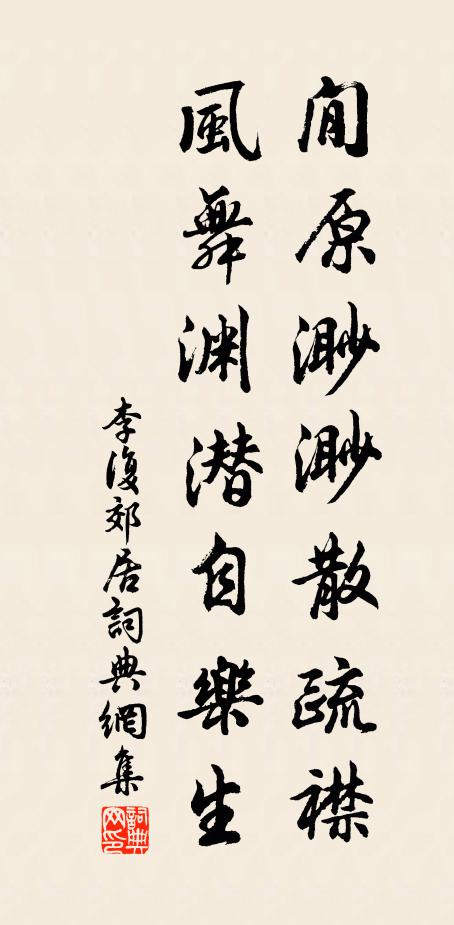 閒原渺渺散疏襟
風舞渊潜自樂生
李復郊居詞典網集
詞典
网印